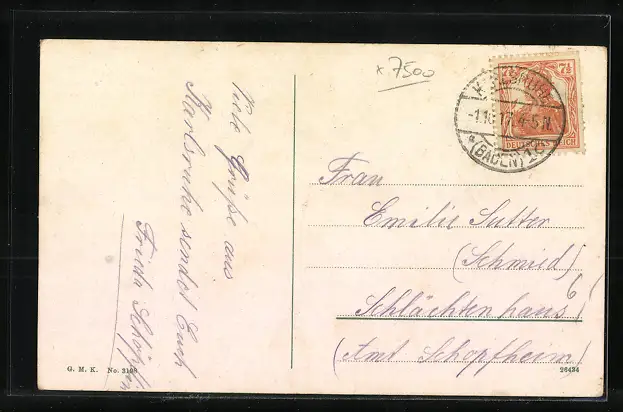 Viele Grüße aus
Karlsruhe sendet Euch
Frieda
× 7500
KARLSRUHE
-1.10.17. 4-5 N.
*(BADEN) 1
7½
DEUTSCHES REICH
Frau
Emilie Sutter
(Schmied)
Schlächtenhaus
(Amt Schopfheim)
G. M. K. No. 3108
26434